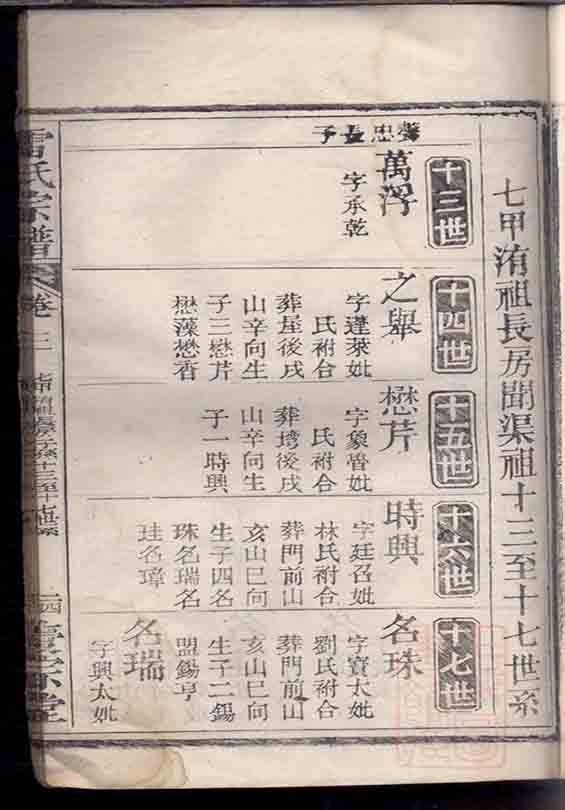 七甲洧祖長房聞渠祖十三至十七世系
十三世
聲忠長子
萬浮
字承乾
十四世
之舉
字蓬萊妣
氏祔合
葬屋後戌
山辛向生
子三懋芹
懋藻懋香
十五世
懋芹
字象皆妣
氏祔合
葬塆後戌
山辛向生
子一時興
十六世
時興
字廷召妣
林氏祔合
葬門前山
亥山巳向
生子四名
珠名瑞名
珪名璋
十七世
名珠
字寶太妣
劉氏祔合
葬門前山
亥山巳向
生子二錫
盟錫亨
名瑞
字興太妣
雷氏宗譜
卷二